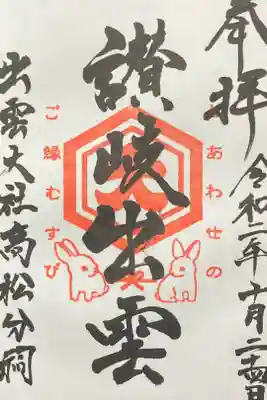 奉拝
令和二年
月二十四日
讃岐出雲
あわせの
ご縁むすび
出雲大社高松分祠